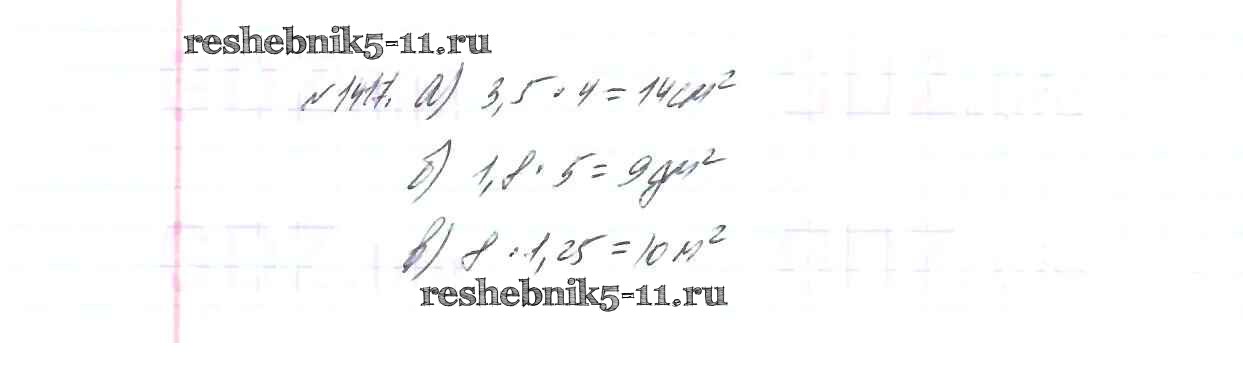 reshebnik5-11.ru
№1417. а) 3,5 · 4 = 14 см²
б) 1,8 · 5 = 9 дм²
в) 8 · 1,25 = 10 м²
reshebnik5-11.ru